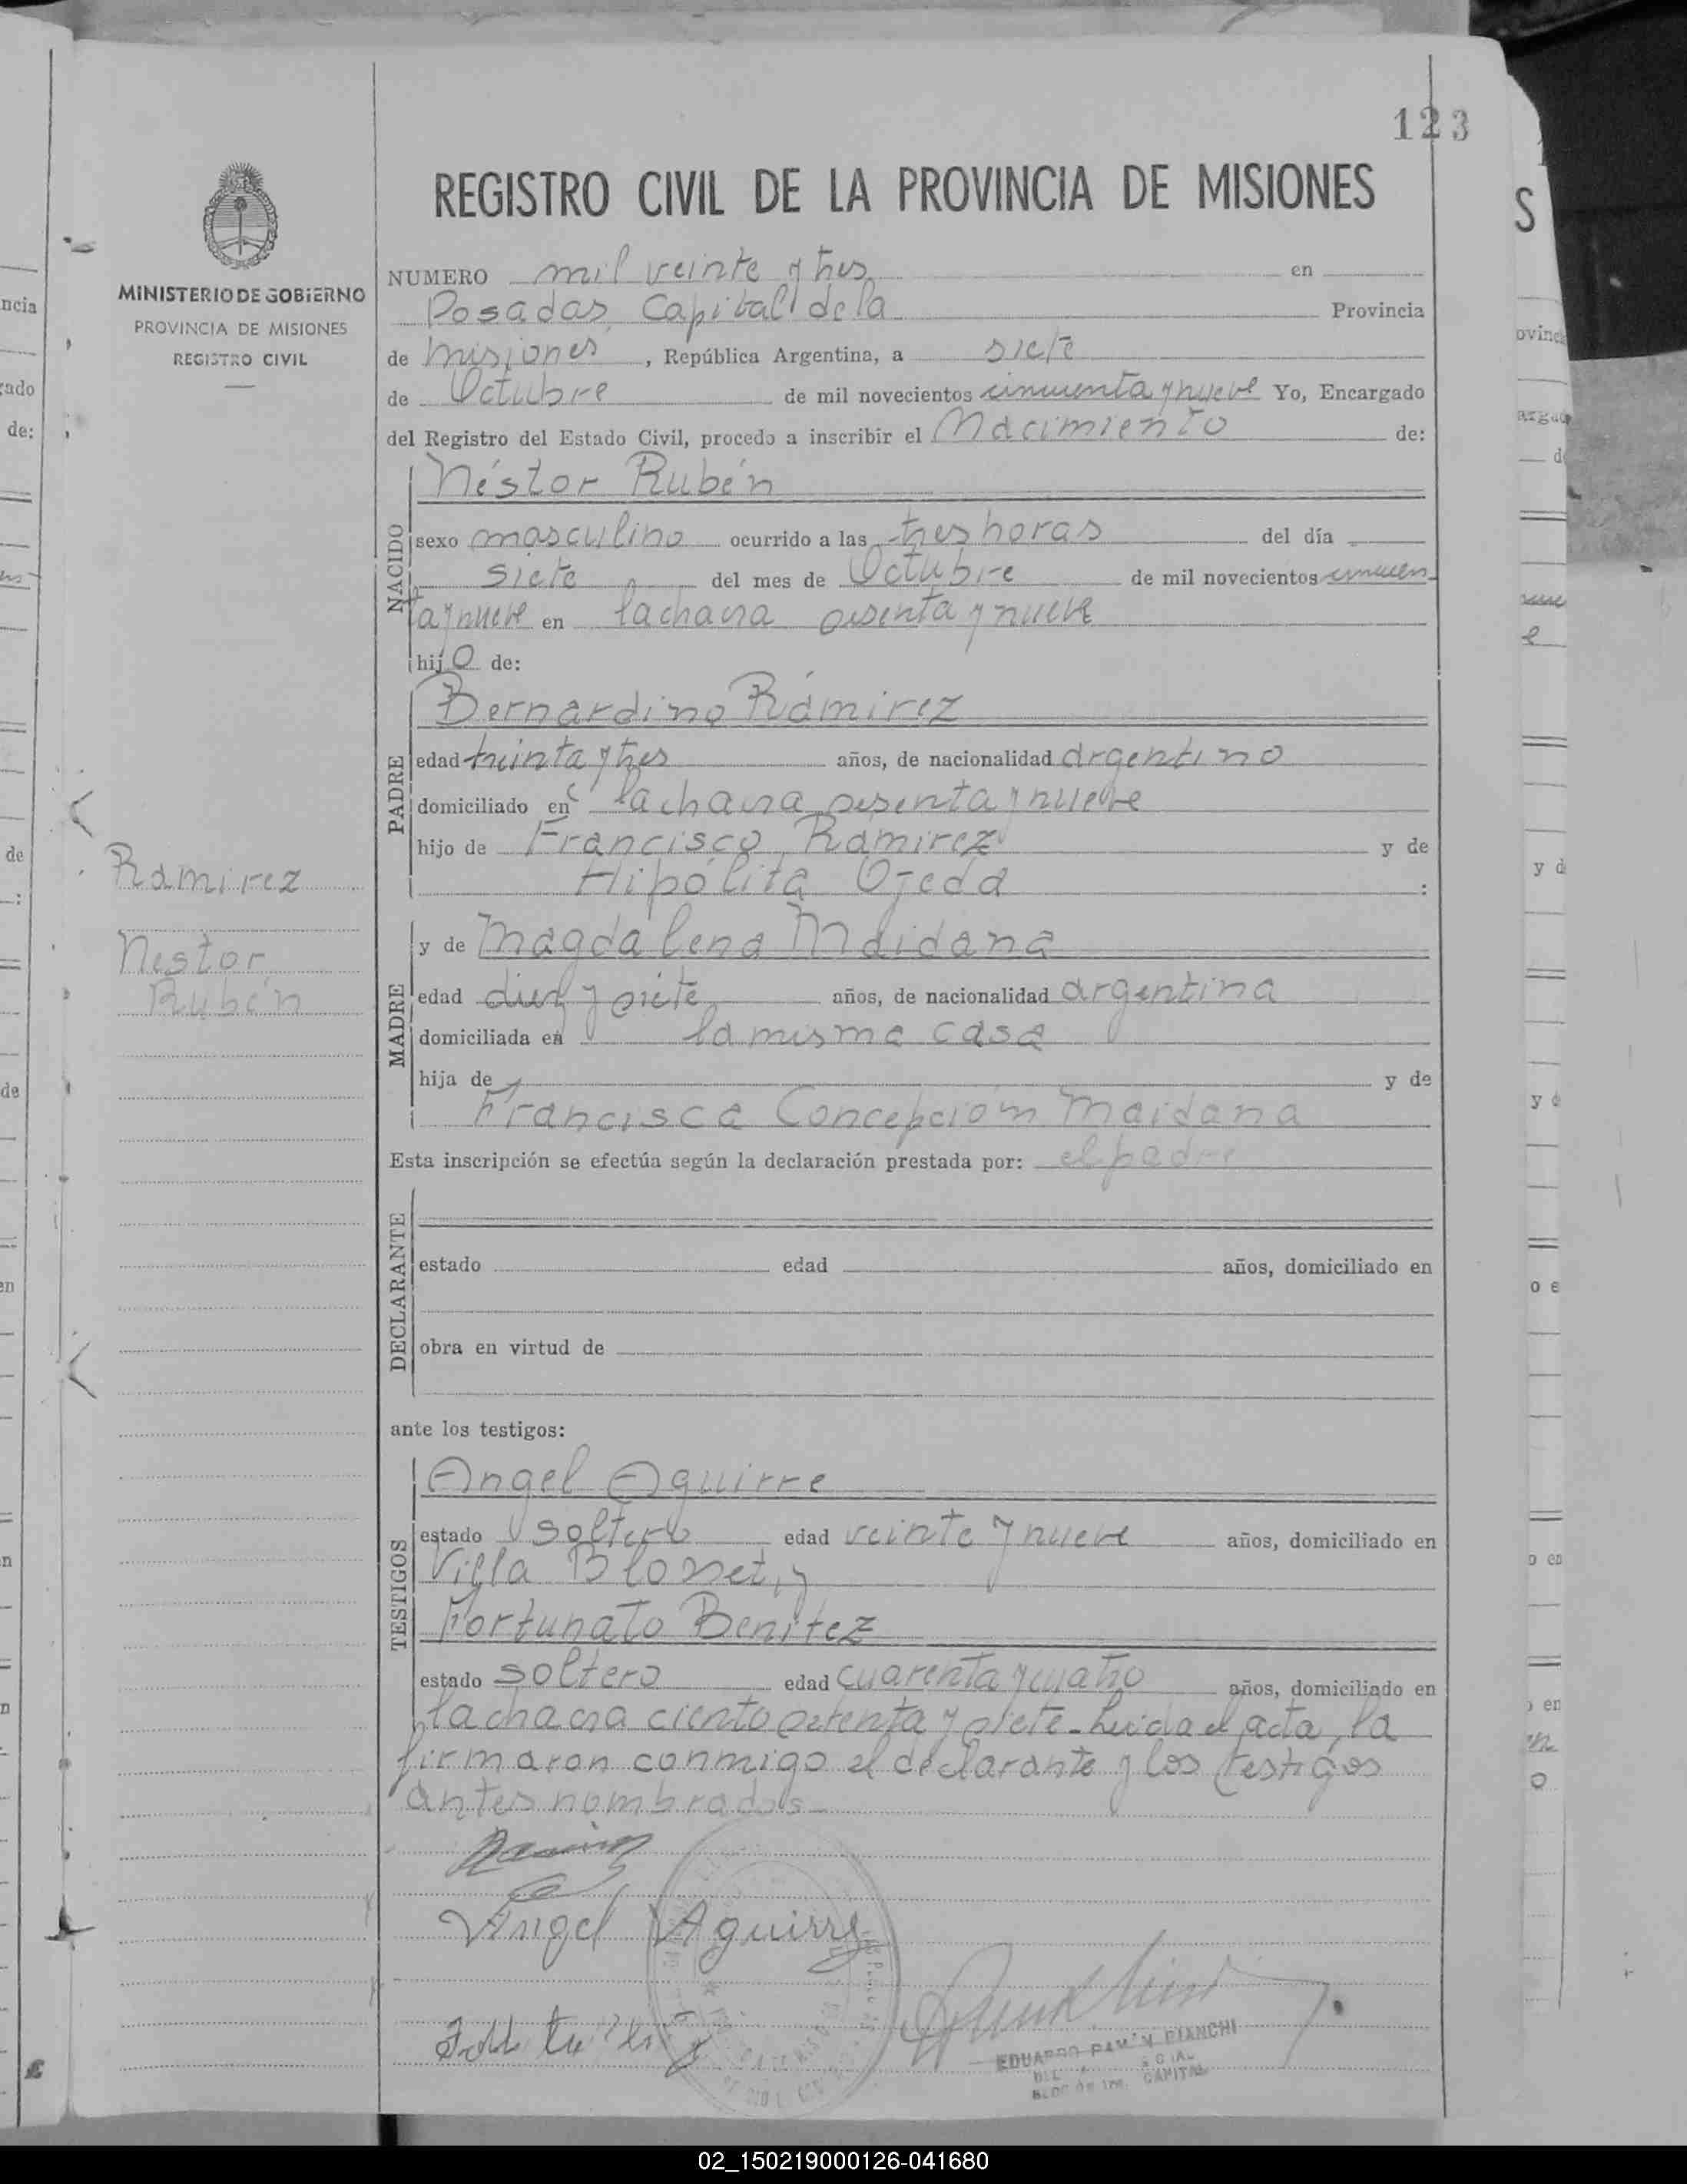 123
REGISTRO CIVIL DE LA PROVINCIA DE MISIONES
MINISTERIO DE GOBIERNO
PROVINCIA DE MISIONES
REGISTRO CIVIL
NUMERO mil veinte y tres en
Posadas Capital de la Provincia
de Misiones, República Argentina, a siete
de Octubre de mil novecientos cincuenta y nueve Yo, Encargado
del Registro del Estado Civil, procedo a inscribir el Nacimiento de:
Néstor Rubén
NACIDO
sexo masculino ocurrido a las tres horas del día
siete del mes de Octubre de mil novecientos cincuen
ta y nueve en la chacra sesenta y nueve
hijo de:
Bernardino Ramirez
PADRE
edad treinta y tres años, de nacionalidad argentino
domiciliado en la chacra sesenta y nueve
hijo de Francisco Ramirez y de
Hipólita Ojeda :
Ramirez
Nestor
Rubén
y de Magdalena Maidana
MADRE
edad diez y siete años, de nacionalidad argentina
domiciliada en la misma casa
hija de y de
Francisca Concepción Maidana
Esta inscripción se efectúa según la declaración prestada por: el padre
DECLARANTE
estado edad años, domiciliado en
obra en virtud de
ante los testigos:
Angel Aguirre
TESTIGOS
estado soltero edad veinte y nueve años, domiciliado en
Villa Blosset, y
Fortunato Benitez
estado soltero edad cuarenta y cuatro años, domiciliado en
la chacra ciento setenta y siete - Leida el acta, la
firmaron conmigo el declarante y los testigos
antes nombrados
Angel Aguirre
EDUARDO RAMÓN BIANCHI
CAPITAL
02_150219000126-041680